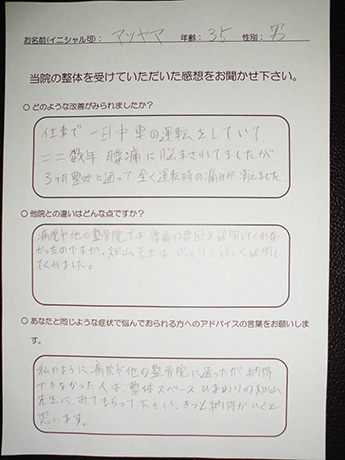 お名前(イニシャル可): マツヤマ 年齢: 35 性別: 男
当院の整体を受けていただいた感想をお聞かせ下さい。
○どのような改善がみられましたか?
仕事で一日中車の運転をしていて、
ここ数年腰痛に悩まされてましたが
3ヶ月整体に通って全く運転時の痛みが消えました。
○他院との違いはどんな点ですか?
病院や他の整骨院では腰痛の原因を説明してくれな
かったのですが、畑山先生はじっくりと詳しく説明し
てくれました。
○あなたと同じような症状で悩んでおられる方へのアドバイスの言葉をお願いしま
す。
私のように病院や他の整骨院に通ったが納得
できなかった人は、整体スペースひまわりの畑山
先生に、みてもらって下さい。きっと納得がいくと
思います。